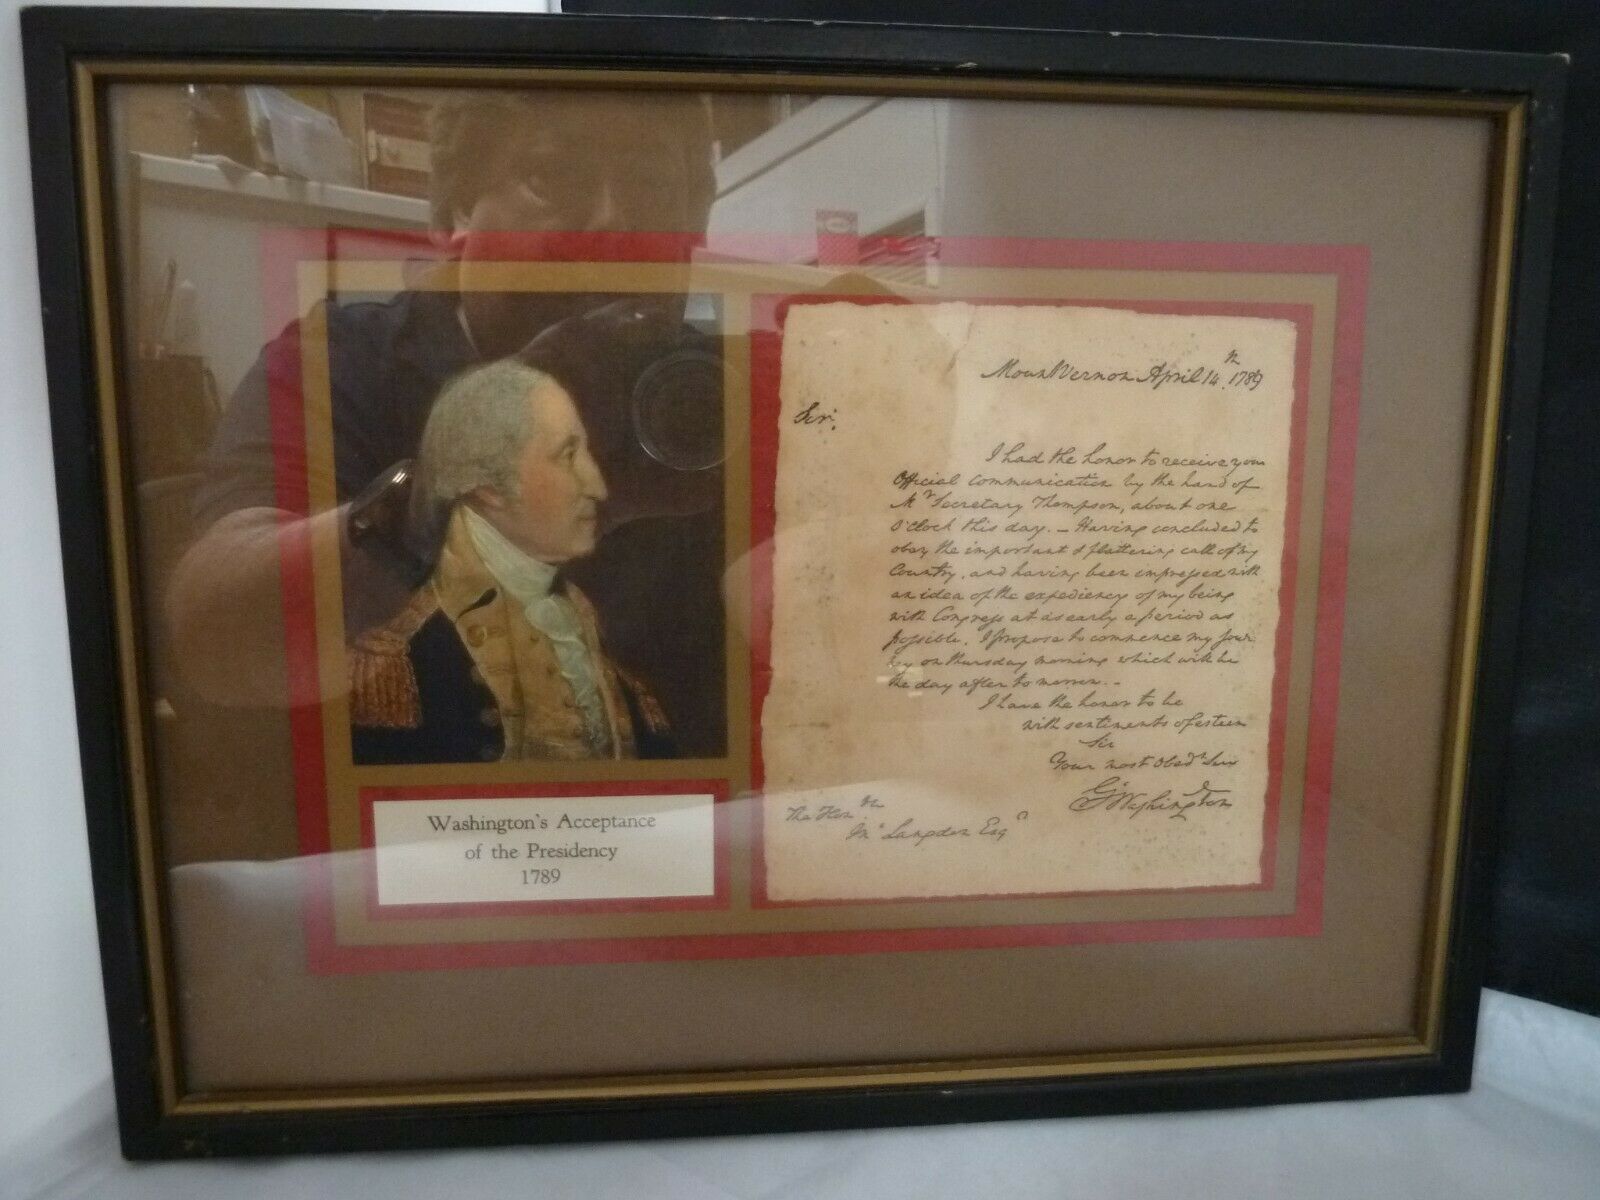 Washington's Acceptance
of the Presidency
1789
Mount Vernon April 14th. 1789
Sir,
I had the honor to receive your
Official Communication by the hand of
Mr Secretary Thompson, about one
O'Clock this day. — Having concluded to
obey the important & flattering call of my
Country, and having been impressed with
an idea of the expediency of my being
with Congress at as early a period as
possible. I propose to commence my jour
ney on thursday morning which will be
the day after to morrow. —
I have the honor to be
with sentiments of esteem
Sir
Your most Obedt Ser
Go Washington
The Honble
Jno Langdon Esqr